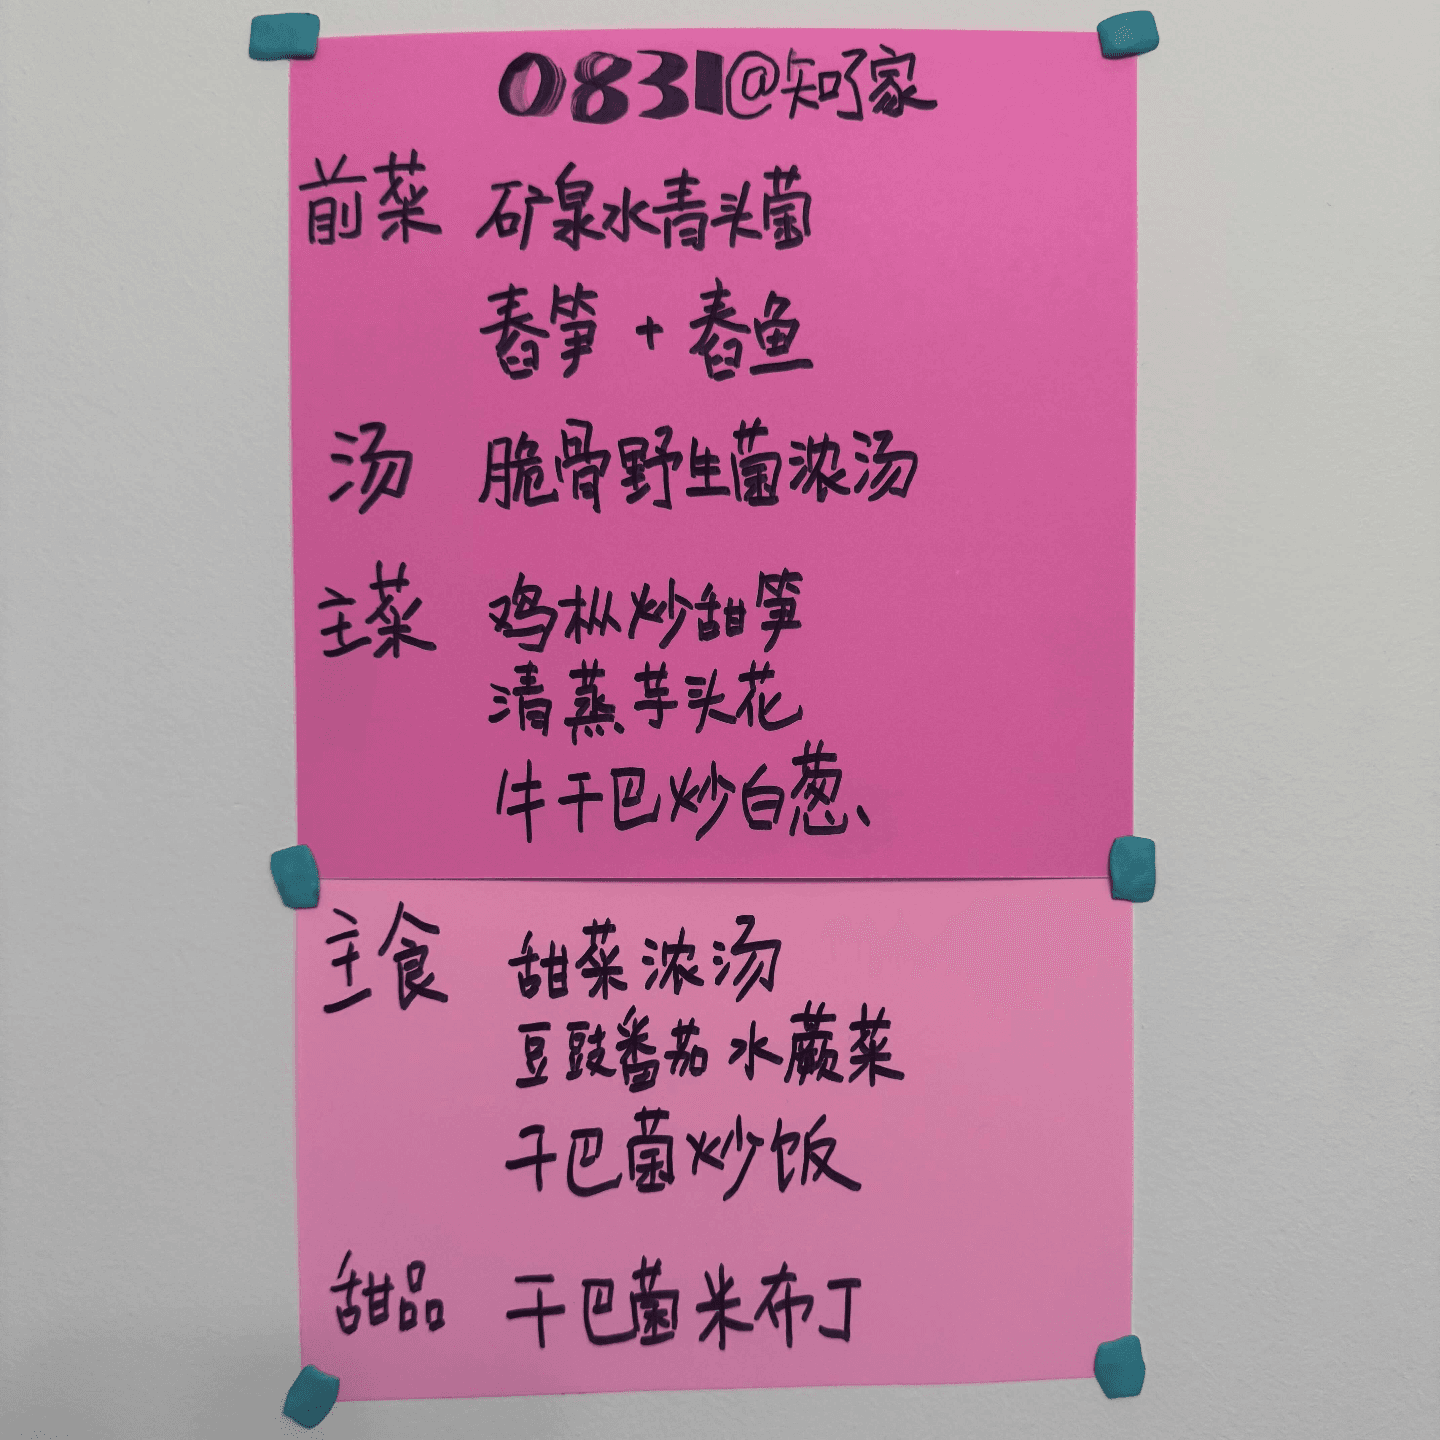 0831@知了家
前菜 矿泉水青头菌
舂笋 + 舂鱼
汤 脆骨野生菌浓汤
主菜 鸡枞炒甜笋
清蒸芋头花
牛干巴炒白葱
主食 甜菜浓汤
豆豉番茄水蕨菜
干巴菌炒饭
甜品 干巴菌米布丁